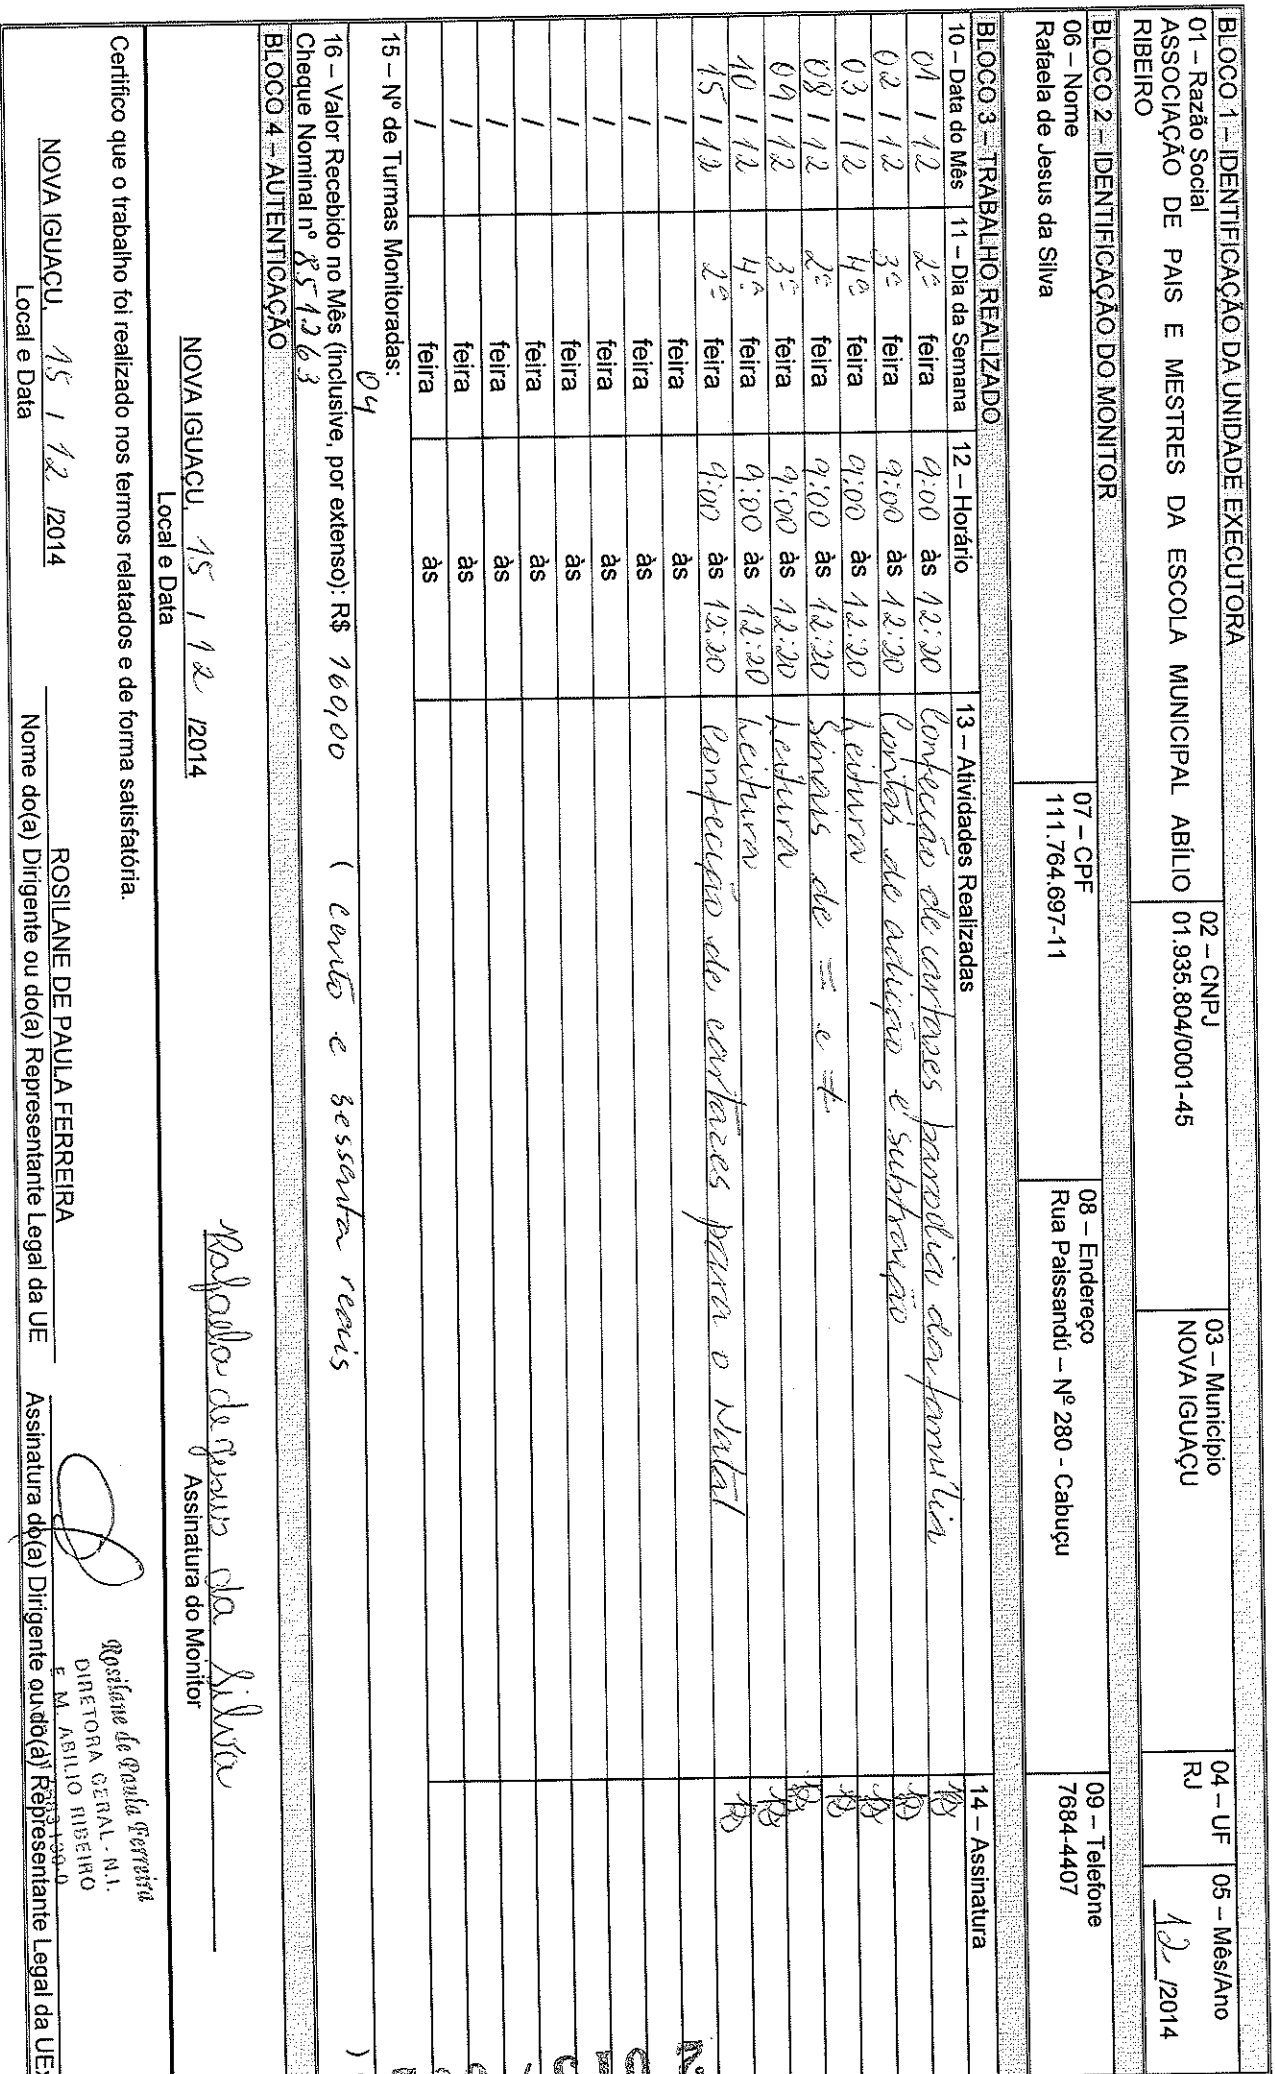 BLOCO 1 – IDENTIFICAÇÃO DA UNIDADE EXECUTORA
01 – Razão Social
ASSOCIAÇÃO DE PAIS E MESTRES DA ESCOLA MUNICIPAL ABÍLIO
RIBEIRO
02 – CNPJ
01.935.804/0001-45
03 – Município
NOVA IGUAÇU
04 – UF
RJ
05 – Mês/Ano
12 /2014
BLOCO 2 – IDENTIFICAÇÃO DO MONITOR
06 – Nome
Rafaela de Jesus da Silva
07 – CPF
111.764.697-11
08 – Endereço
Rua Paissandú – Nº 280 - Cabuçu
09 – Telefone
7684-4407
BLOCO 3 – TRABALHO REALIZADO
10 – Data do Mês 11 – Dia da Semana 12 – Horário 13 – Atividades Realizadas 14 – Assinatura
01 / 12 2ª feira 9:00 às 12:20 Confecção de cartazes parodia da família
02 / 12 3ª feira 9:00 às 12:20 Contas de adição e subtração
03 / 12 4ª feira 9:00 às 12:20 Leitura
08 / 12 2ª feira 9:00 às 12:20 Sinais de = e ≠
09 / 12 3ª feira 9:00 às 12:20 Leitura
10 / 12 4ª feira 9:00 às 12:20 Leitura
15 / 12 2ª feira 9:00 às 12:20 Confecção de cartazes para o Natal
/ feira às
/ feira às
/ feira às
/ feira às
/ feira às
/ feira às
/ feira às
/ feira às
15 – Nº de Turmas Monitoradas: 04
16 – Valor Recebido no Mês (inclusive, por extenso): R$ 160,00 ( cento e sessenta reais )
Cheque Nominal nº 851263
BLOCO 4 – AUTENTICAÇÃO
NOVA IGUAÇU, 15 / 12 /2014
Local e Data
Rafaela de Jesus da Silva
Assinatura do Monitor
Certifico que o trabalho foi realizado nos termos relatados e de forma satisfatória.
NOVA IGUAÇU, 15 / 12 /2014
Local e Data
ROSILANE DE PAULA FERREIRA
Nome do(a) Dirigente ou do(a) Representante Legal da UE
Rosilane de Paula Ferreira
DIRETORA GERAL - N.I.
E. M. ABILIO RIBEIRO
Assinatura do(a) Dirigente ou do(a) Representante Legal da UEx